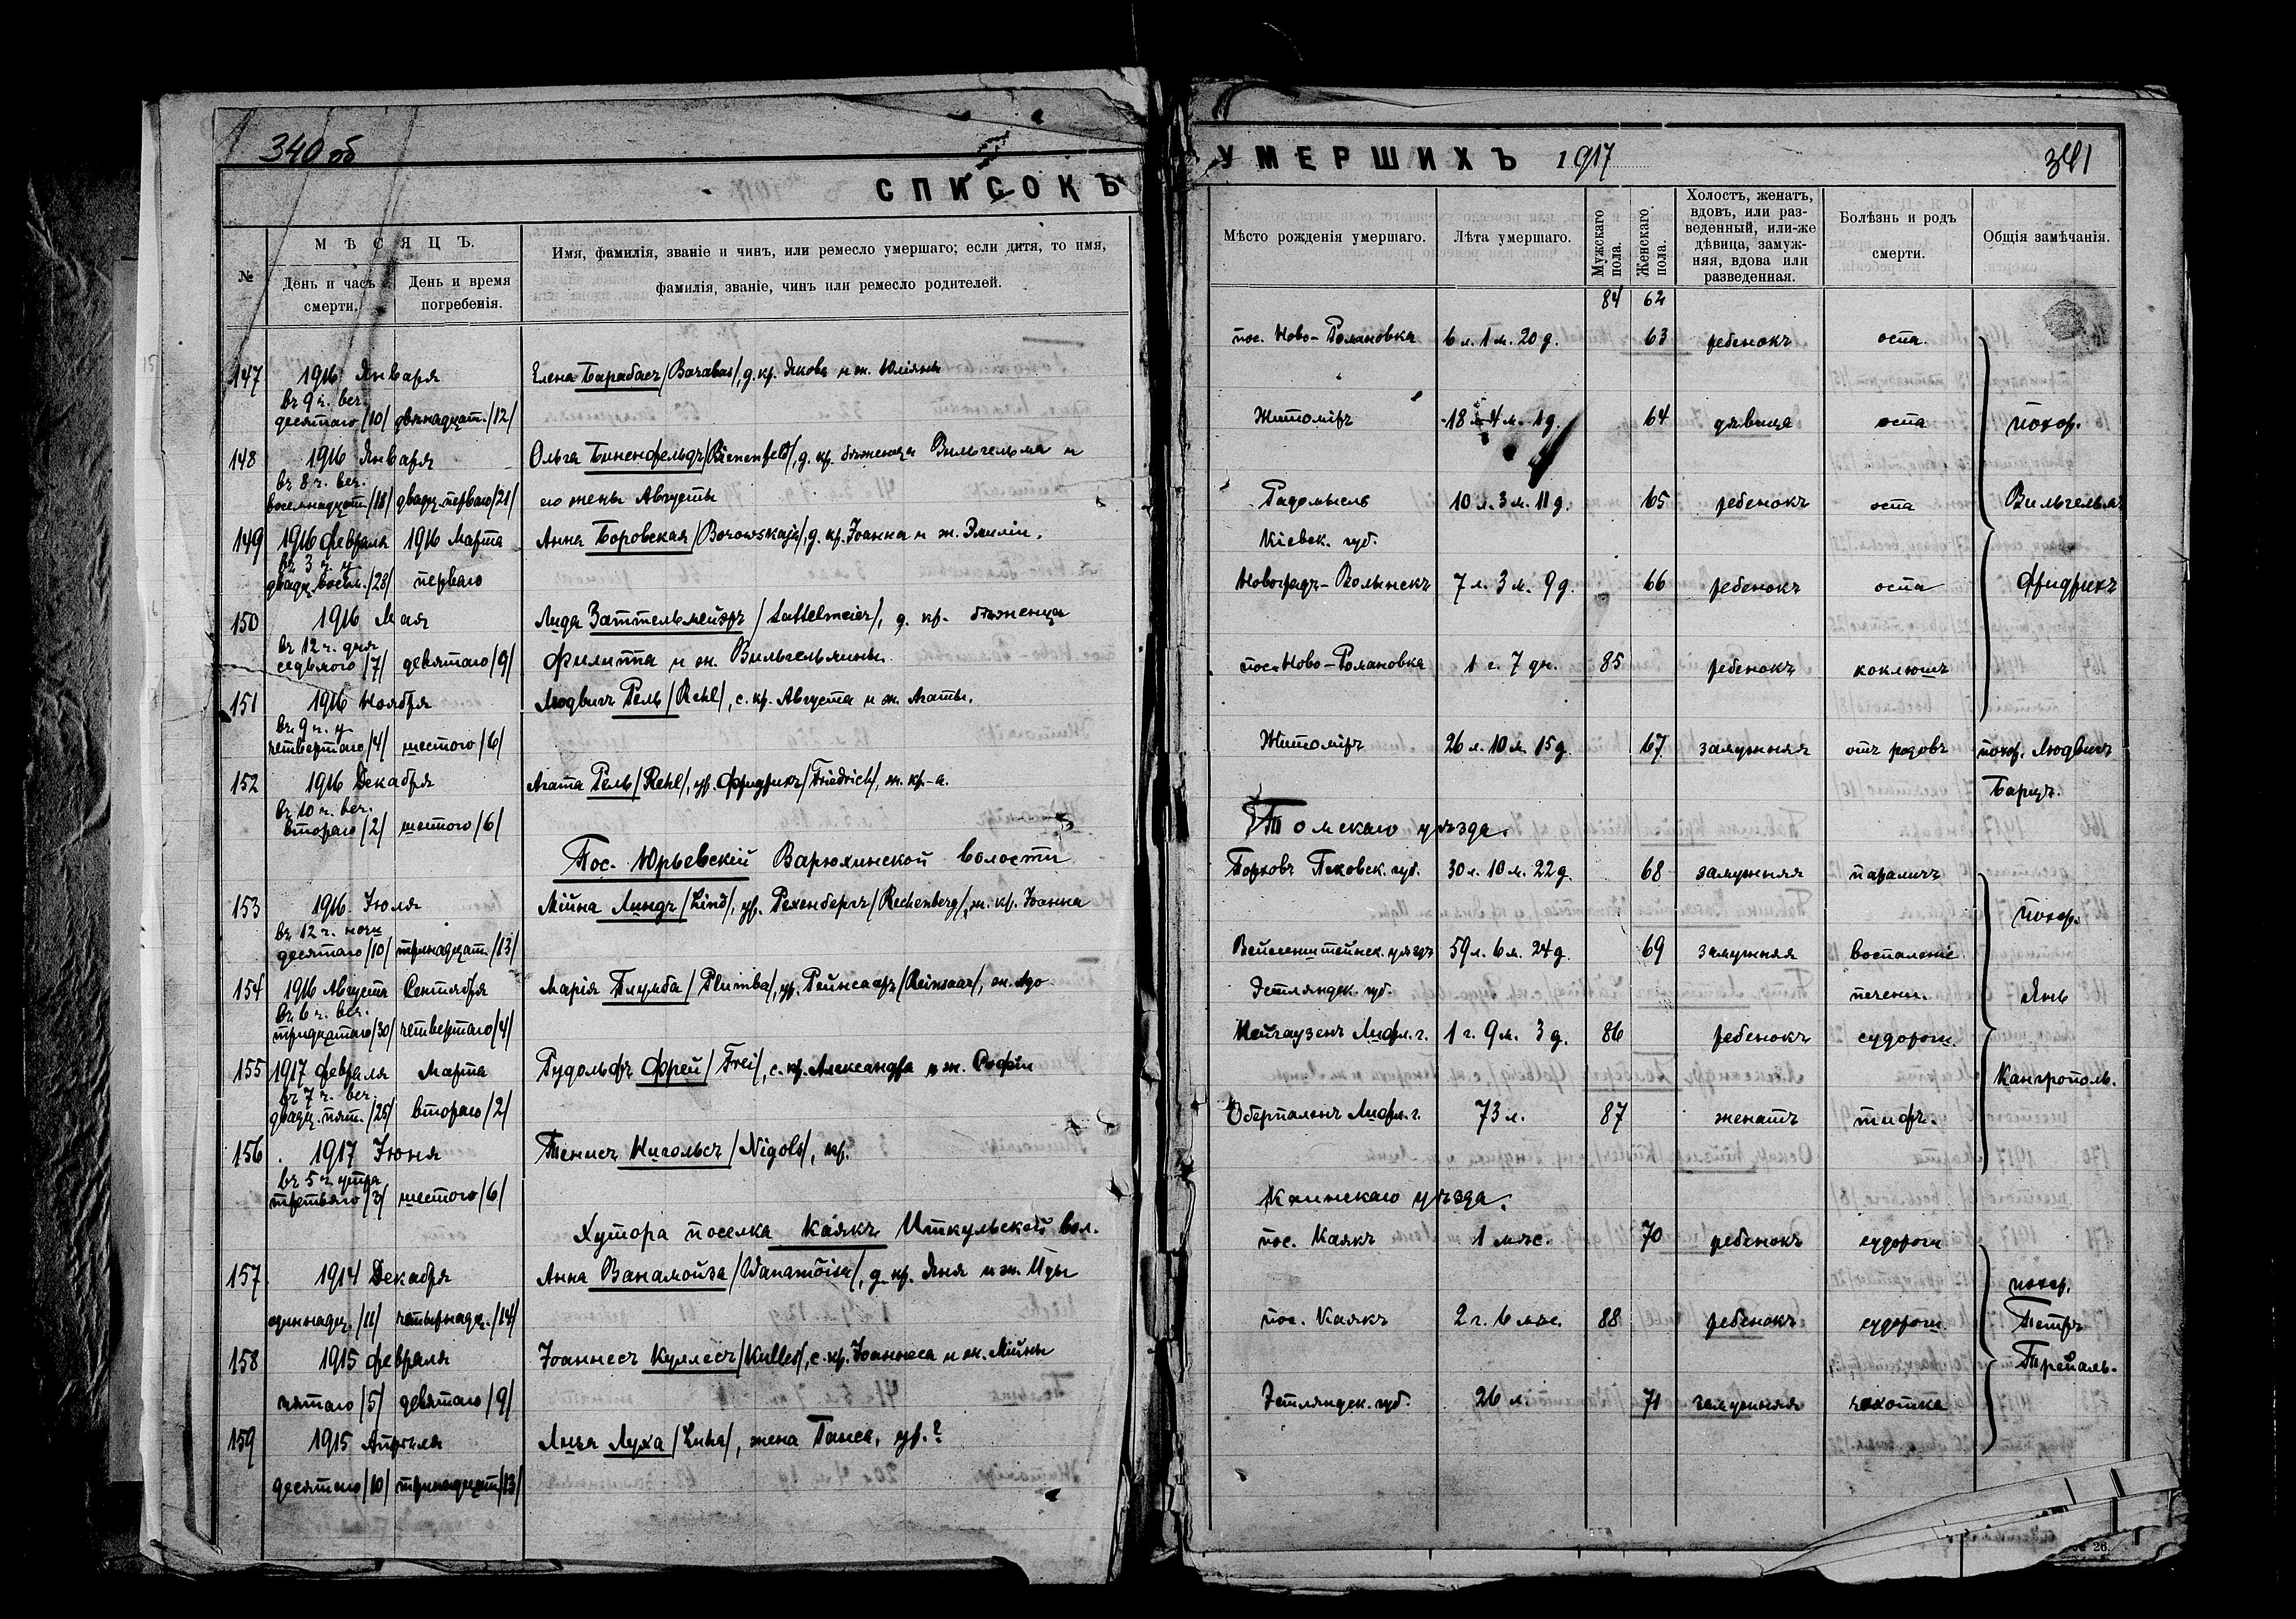 340 об
СПИСОКЪ
№
МѢСЯЦЪ.
День и часъ смерти.
День и время погребенія.
Имя, фамилія, званіе и чинъ, или ремесло умершаго; если дитя, то имя,
фамилія, званіе, чинъ или ремесло родителей.
147 1916 Января
въ 9 ч. веч.
десятаго /10/ двѣнадцат. /12/
Елена Барабасъ /Barabas/, д. кр. Якова и ж. Юліяны
148 1916 Января
въ 8 ч. веч.
восемнадцат. /18/ двадц. перваго /21/
Ольга Биненфельдъ /Bienenfeld/, д. кр. бѣженца Вильгельма и
его жены Августы
149 1916 Февраля 1916 Марта
въ 3 ч. у.
двадц. восьм. /28/ перваго
Анна Боровская /Borowskaja/, д. кр. Іоанна и ж. Эмиліи.
150 1916 Мая
въ 12 ч. дня
седьмого /7/ девятаго /9/
Лида Заттельмейеръ /Sattelmeier/, д. кр. бѣженца
Филиппа и ж. Вильгельмины.
151 1916 Ноября
въ 9 ч. у.
четвертаго /4/ шестого /6/
Людвигъ Рель /Rehl/, с. кр. Августа и ж. Агаты.
152 1916 Декабря
въ 10 ч. веч.
второго /2/ шестого /6/
Агата Рель /Rehl/, ур. Фридрихъ /Friedrich/, ж. кр-а.
Пос. Юрьевскій Варюхинской волости
153 1916 Іюля
въ 12 ч. ночи
десятаго /10/ тринадцат. /13/
Мійна Линдъ /Lind/, ур. Рехенбергъ /Rechenberg/, ж. кр. Іоанна
154 1916 Августа Сентября
въ 6 ч. веч.
тридцатаго /30/ четвертаго /4/
Марія Плумба /Plumba/, ур. Рейнсааръ /Reinsaar/, ж. Адо
155 1917 Февраля Марта
въ 7 ч. веч.
двадц. пят. /25/ второго /2/
Рудольфъ Фрей /Frei/, с. кр. Александра и ж. Софіи
156 1917 Іюня
въ 5 ч. утра
третьяго /3/ шестого /6/
Тенисъ Нигольсъ /Nigols/, кр.
Хутора поселка Каякъ Иткульской вол.
157 1914 Декабря
одиннадц. /11/ четырнадц. /14/
Анна Ванамойза /Wanamõisa/, д. кр. Яня и ж. Иды
158 1915 Февраля
пятаго /5/ девятаго /9/
Іоаннесъ Куллесъ /Kulles/, с. кр. Іоаннеса и ж. Мійны
159 1915 Апрѣля
десятаго /10/ тринадцат. /13/
Луха /Luha/, жена Ганса, ур. ?
УМЕРШИХЪ 1917
341
Мѣсто рожденія умершаго.
Лѣта умершаго.
Мужскаго пола.
Женскаго пола.
Холостъ, женатъ, вдовъ, или разведенный, или-же дѣвица, замужняя, вдова или разведенная.
Болѣзнь и родъ смерти.
Общія замѣчанія.
84 62
пос. Ново-Романовка 6 л. 1 м. 20 д. 63 ребенокъ оспа
Житоміръ 18 л. 4 м. 1 д. 64 дѣвица оспа похор.
Радомысль 10 л. 3 м. 11 д. 65 ребенокъ оспа Вильгельмъ
Кіевск. губ.
Новоградъ-Волынскъ 7 л. 3 м. 9 д. 66 ребенокъ оспа Фридрихъ
пос. Ново-Романовка 1 г. 7 дн. 85 ребенокъ коклюшъ
Житоміръ 26 л. 10 м. 15 д. 67 замужняя отъ родовъ похор. Людвигъ
Барцъ.
Томскаго уѣзда.
Порховъ Псковск. губ. 30 л. 10 м. 22 д. 68 замужняя параличъ
похор.
Вейсенштейнск. уѣздъ 59 л. 6 м. 24 д. 69 замужняя воспаленіе
Эстляндск. губ. печени. Янь
Нейгаузенъ Лифл. г. 1 г. 9 м. 3 д. 86 ребенокъ судороги.
Кангрополь.
Оберпаленъ Лифл. г. 73 л. 87 женатъ тифъ.
Каинскаго уѣзда.
пос. Каякъ 1 мѣс. 70 ребенокъ судороги
похор.
пос. Каякъ 2 г. 6 мѣс. 88 ребенокъ судороги Петръ
Трейаль.
Эстляндск. губ. 26 л. 71 замужняя чахотка
26.